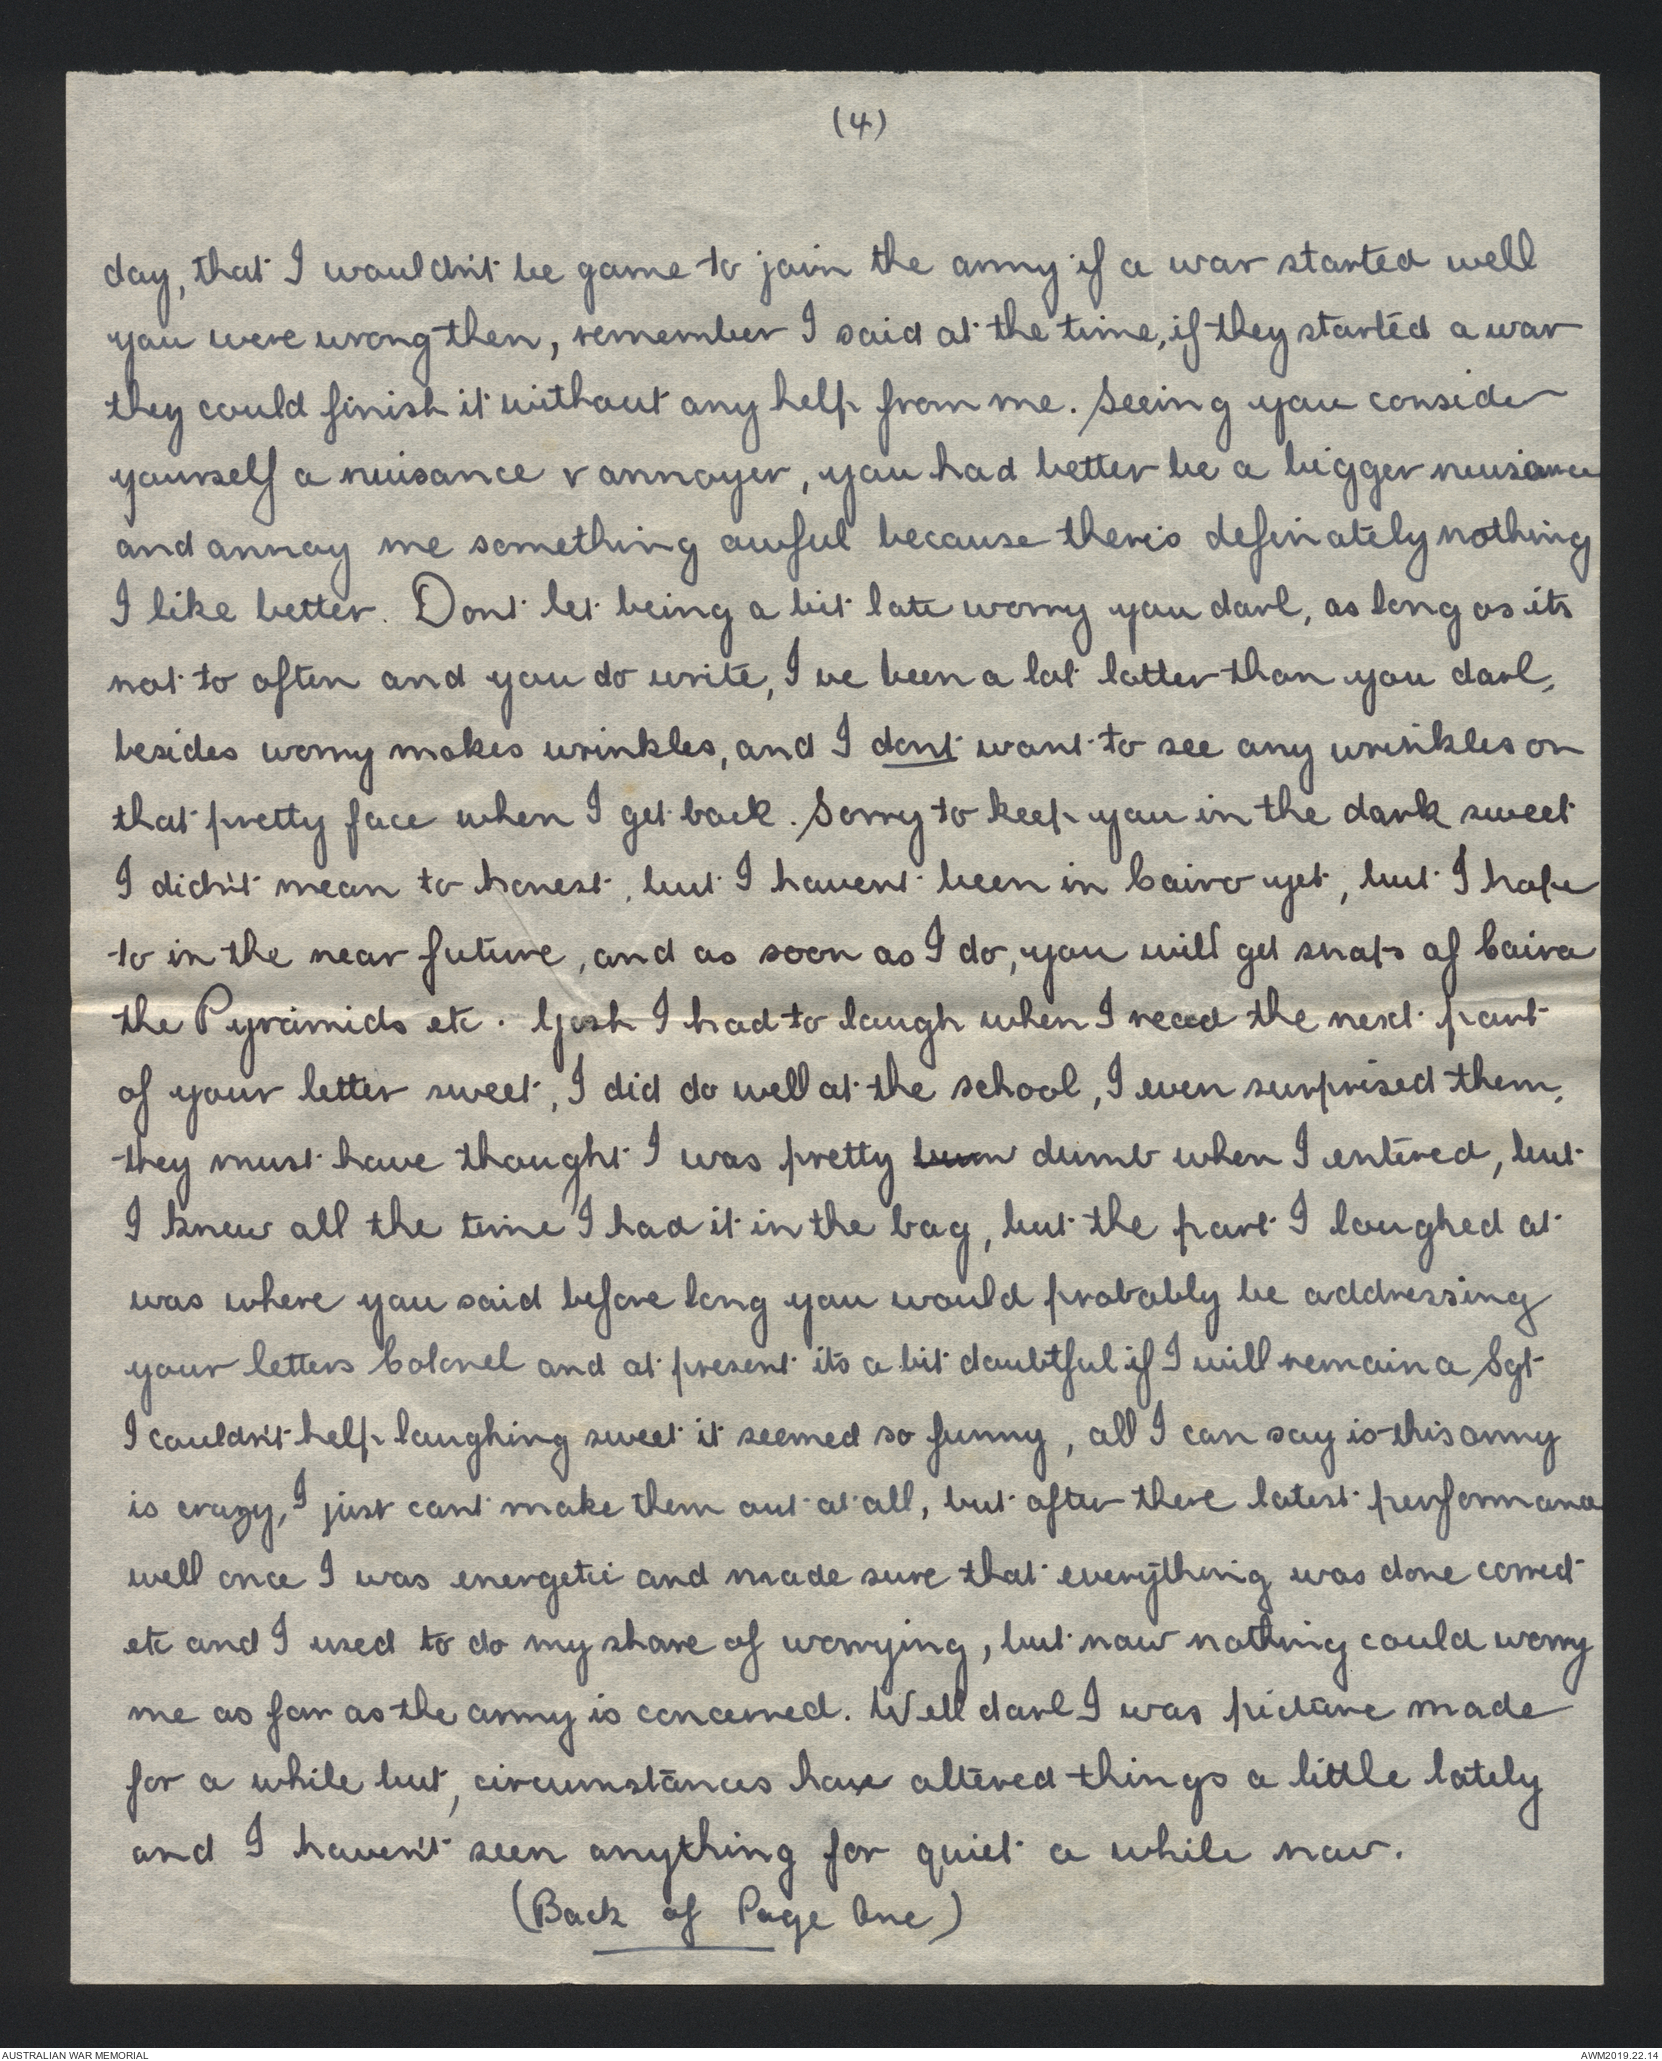 (4)
day, that I wouldn't be game to join the army if a war started well
you were wrong then, remember I said at the time, if they started a war
they could finish it without any help from me. Seeing you consider
yourself a nuisance & annoyer, you had better be a bigger nuisance
and annoy me something awful because there's definately nothing
I like better. Dont let being a bit late worry you darl, as long as its
not to often and you do write, I've been a lot latter than you darl,
besides worry makes wrinkles, and I dont want to see any wrinkles on
that pretty face when I get back. Sorry to keep you in the dark sweet
I didn't mean to honest, but I havent been in Cairo yet, but I hope
to in the near future, and as soon as I do, you will get snaps of Cairo
the Pyramids etc. Gosh I had to laugh when I read the next part
of your letter sweet, I did do well at the school, I even surprised them,
they must have thought I was pretty dumb when I entered, but
I knew all the time I had it in the bag, but the part I laughed at
was where you said before long you would probably be addressing
your letters Colonel and at present its a bit doubtful if I will remain a Sgt
I couldn't help laughing sweet it seemed so funny, all I can say is this army
is crazy, I just cant make them out at all, but after there latest performance
well once I was energetic and made sure that everything was done correct
etc and I used to do my share of worrying, but now nothing could worry
me as far as the army is concerned. Well darl I was picture made
for a while but, circumstances have altered things a little lately
and I haven't seen anything for quiet a while now.
(Back of Page One)
AUSTRALIAN WAR MEMORIAL
AWM2019.22.14